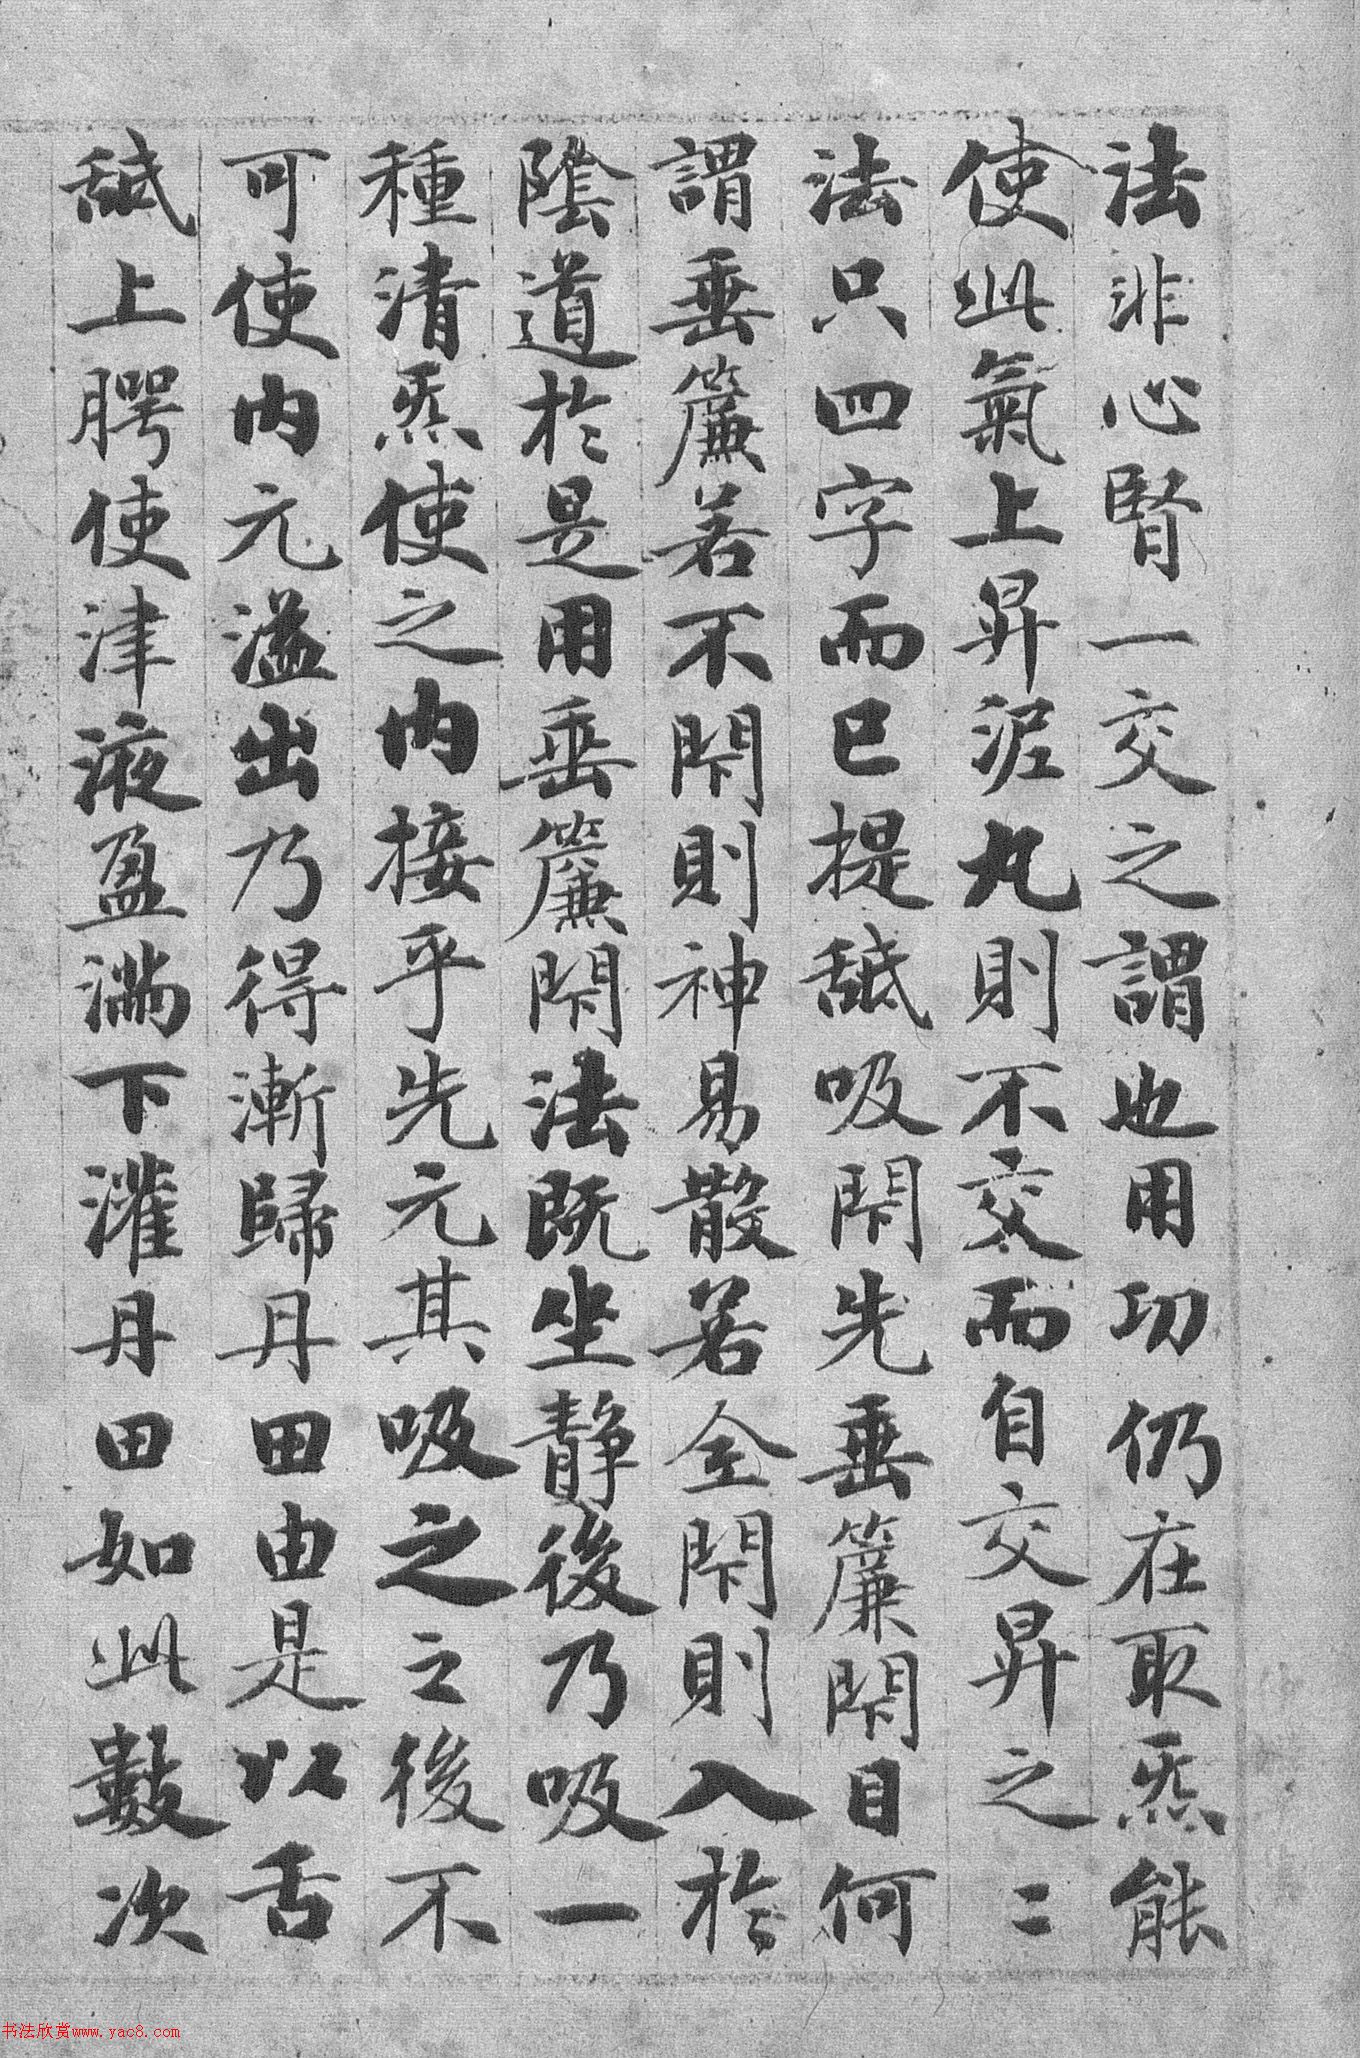 法非心腎一交之謂也用功仍在取炁能
使此氣上昇泥丸則不交而自交昇之二
法只四字而已提舐吸閇先垂簾閇目何
謂垂簾若不閇則神易散若全閇則入於
陰道於是用垂簾閇法既坐靜後乃吸一
種清炁使之內接乎先元其吸之之後不
可使內元溢出乃得漸歸丹田由是以舌
舐上腭使津液盈滿下灌丹田如此數次
书法欣赏www.yac8.com